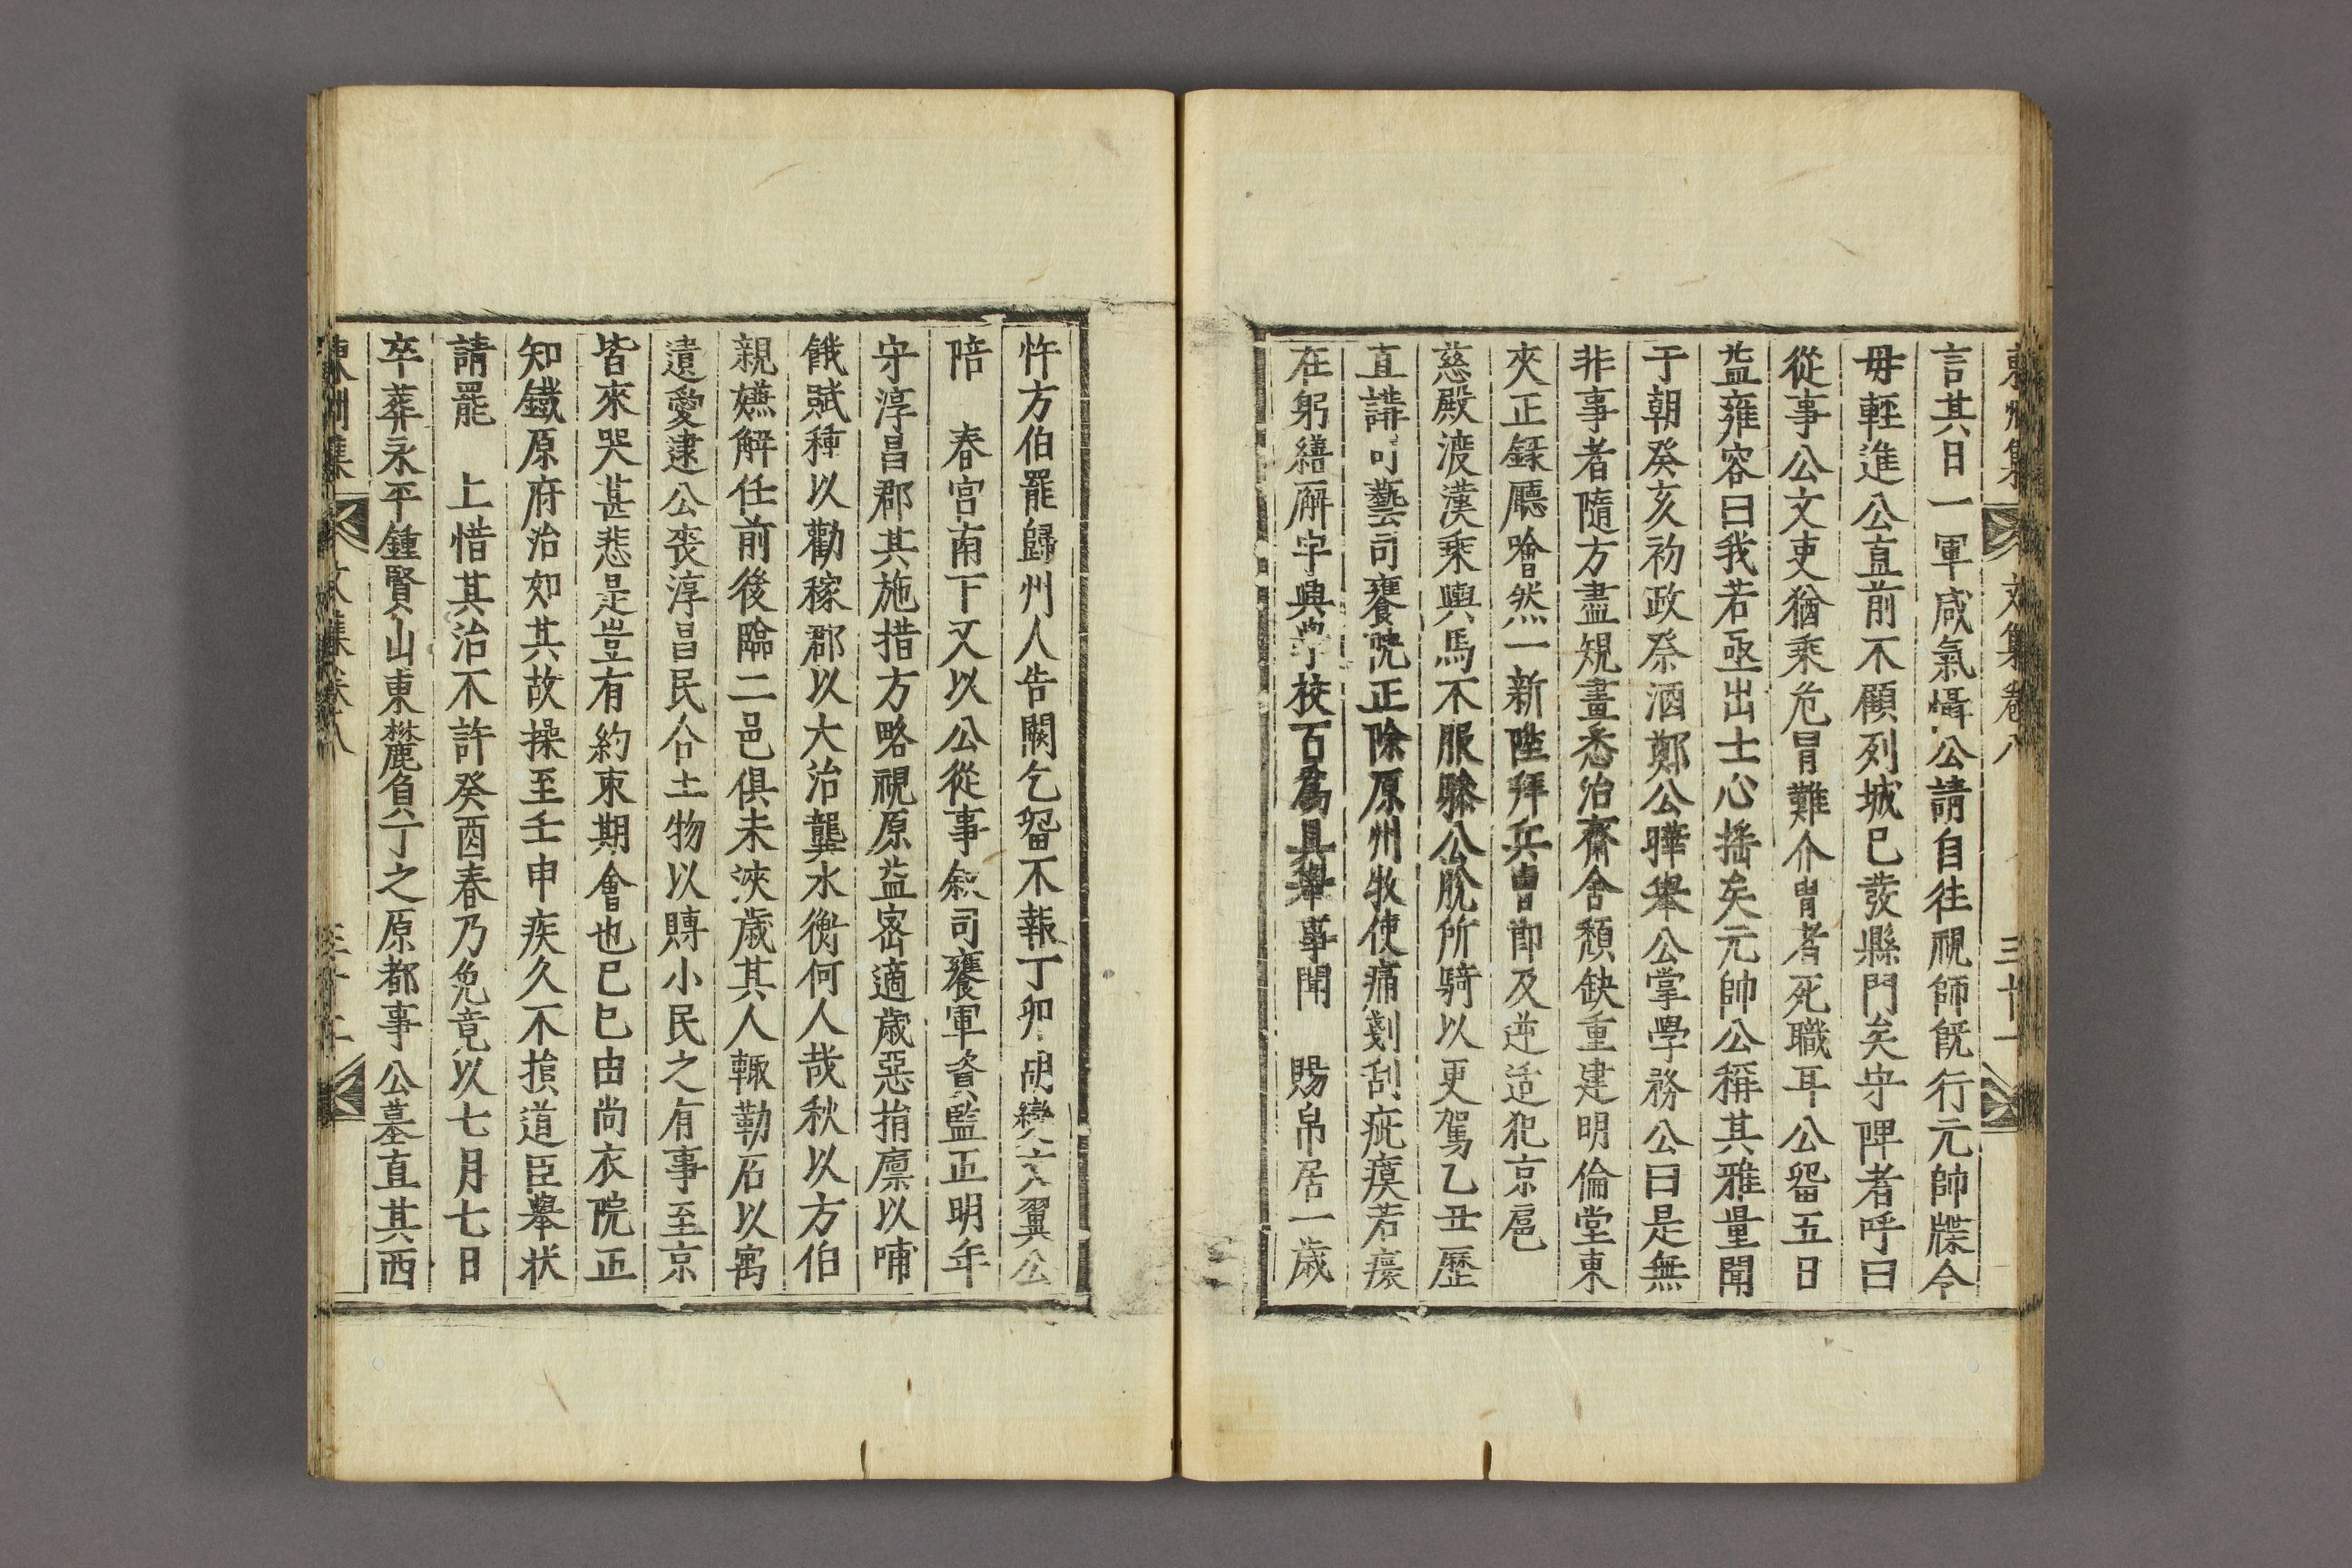 東州集 文集卷八 三十一
言其日一軍咸氣懾公請自往視師旣行元帥牒令
毋輕進公直前不顧列城已發縣門矣守陴者呼曰
從事公文吏猶乘危冒難介胄者死職耳公留五日
益雍容曰我若亟出士心搖矣元帥公稱其雅量聞
于朝癸亥初政祭酒鄭公曄舉公掌學務公曰是無
非事者隨方盡規畫悉治齋舍頹缺重建明倫堂東
夾正錄廳噲然一新陞拜兵曹郞及逆适犯京扈
慈殿渡漢乘輿馬不服驂公脫所騎以更駕乙丑歷
直講司藝司饔院正除原州牧使痛剗刮疵瘼若瘝
在躬繕廨宇興學校百爲具擧事聞 賜帛居一歲
忤方伯罷歸州人告闕乞留不報丁卯胡變六翼公
陪 春宮南下又以公從事敘司饔軍資監正明年
守淳昌郡其施措方略視原益密適歲惡捐廩以哺
餓賦種以勸稼郡以大治龔水衡何人哉秋以方伯
親嫌解任前後臨二邑俱未浹歲其人輒勒石以寓
遺愛逮公喪淳昌民合土物以賻小民之有事至京
皆來哭甚悲是豈有約束期會也己巳由尙衣院正
知鐵原府治如其故操至壬申疾久不損道臣擧狀
請罷 上惜其治不許癸酉春乃免竟以七月七日
卒葬永平鍾賢山東麓負丁之原都事公墓直其西
東州集 文集卷八 三十二